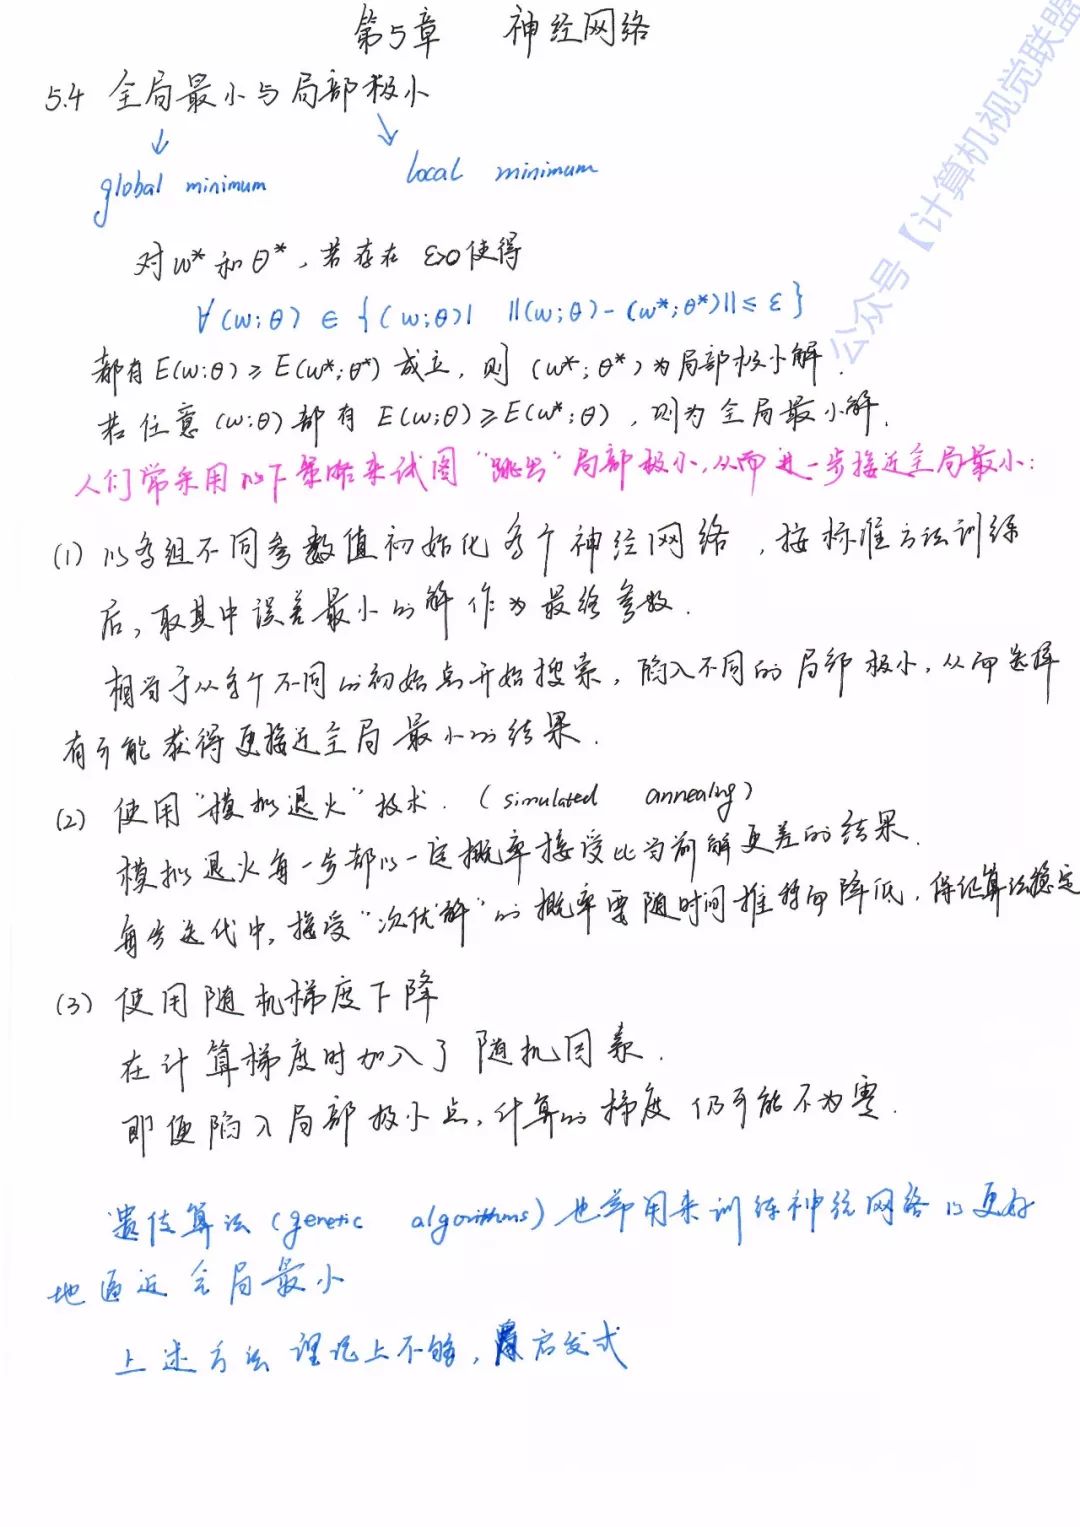 第5章 神经网络
5.4 全局最小与局部极小
↓ ↘
global minimum local minimum
对w*和θ*，若存在 ε>0使得
∀(w;θ) ∈ {(w;θ)| ||(w;θ)-(w*;θ*)||≤ε}
都有E(w;θ)≥E(w*;θ*)成立，则(w*;θ*)为局部极小解.
若任意(w;θ)都有E(w;θ)≥E(w*;θ)，则为全局最小解.
人们常采用以下策略来试图“跳出”局部极小，从而进一步接近全局最小：
(1) 以多组不同参数值初始化多个神经网络，按标准方法训练
后，取其中误差最小的解作为最终参数.
相当于从多个不同的初始点开始搜索，陷入不同的局部极小，从而选择
有可能获得更接近全局最小的结果.
(2) 使用“模拟退火”技术.(simulated annealing)
模拟退火每一步都以一定概率接受比当前解更差的结果.
每步迭代中，接受“次优解”的概率要随时间推移而降低，保证算法稳定
(3) 使用随机梯度下降
在计算梯度时加入了随机因素.
即便陷入局部极小点，计算的梯度仍可能不为零.
遗传算法(genetic algorithms)也常用来训练神经网络以更好
地逼近全局最小
上述方法理论上不够，启发式
公众号【计算机视觉联盟